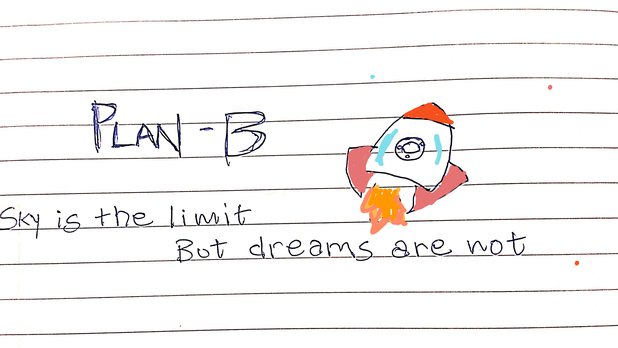 PLAN-B
Sky is the limit
But dreams are not